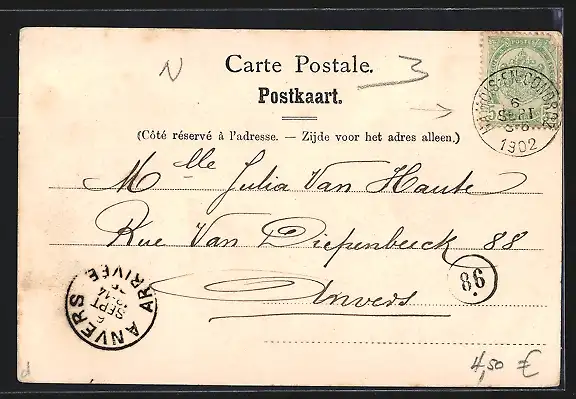 N
Carte Postale.
3
Postkaart.
(Côté réservé à l'adresse. — Zijde voor het adres alleen.)
6
SEPT
1902
Mlle Julia Van Haute
Rue Van Diepenbeeck 88
Anvers
86
ANVERS
ARRIVÉE
6
SEPT
4,50 €
d